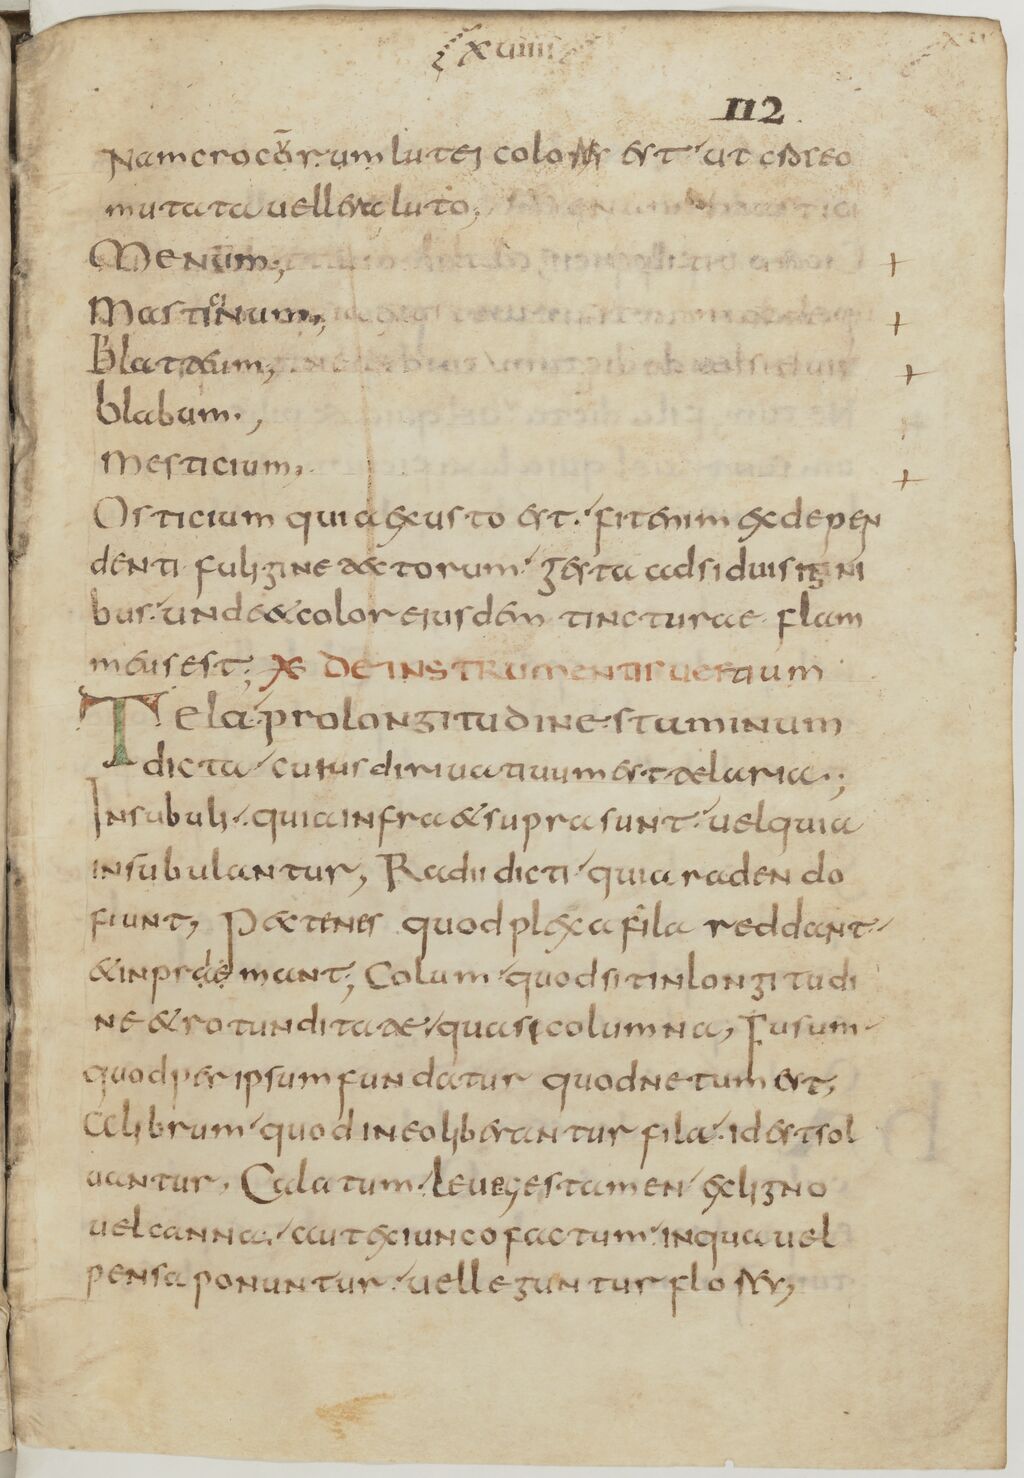 xuiiii
112
Nam crocorum lutei coloris est ut croceo
mutata uellera luto;
Menum;
Masticinum;
Blatteum;
blabum.,
mesticium,.
Osticium quia ex usto est. fit enim ex depen
denti fuligine tectorum gesta adsiduis igni
bus. unde & color eiusdem tincturae flam
meus est; X DE INSTRUMENTIS UESTIUM
Tela. pro longitudine staminum
dicta cuius diriuatiuum est telaria.;
Insubuli. quia infra & supra sunt. uel quia
insubulantur, Radii dicti quia radendo
fiunt, Pectenes quod plexa fila reddant
& inpraemant, Colum quod sit in longitudi
ne & rotunditate quasi columna, Fusum
quod per ipsum fundatur quod netum est,
Alibrum quod in eo liberantur fila. id est sol
uantur, Calatum leue gestamen ex ligno
uel canna. aut ex iunco factum in qua uel
pensa ponuntur. uel leguntur flores,